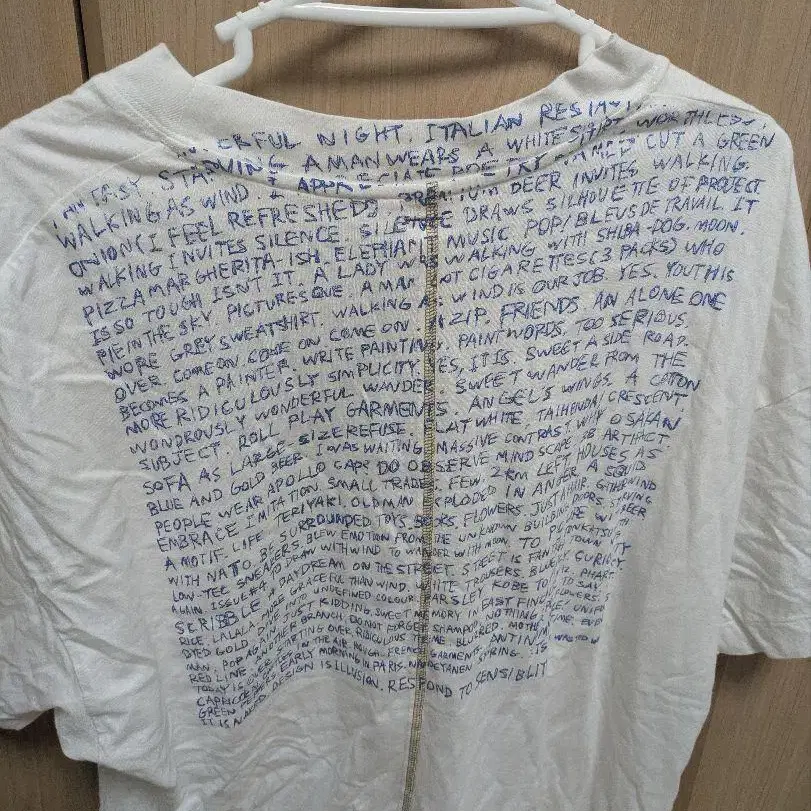 ERFUL NIGHT. ITALIAN
EASY STARVING A MAN WEARS A WHITE SHIRT. WORTHLESS,
WALKING AS WIND. I APPRECIATE POETRY NAMED CUT A GREEN
ONION (I FEEL REFRESHED) PREMIUM DEER INVITES WALKING.
WALKING INVITES SILENCE. SILENCE DRAWS SILHOUETTE OF PROJECT
PIZZA MARGHERITA-ISH. ELEPHANT MUSIC POP/BLEUS DE TRAVAIL IT
IS SO TOUGH ISN'T IT. A LADY WALKING WITH SHIBA-DOG. MOON.
PIE IN THE SKY PICTURESQUE. A MAN NOT CIGARETTES (3 PACKS) WHO
WORE GREY SWEATSHIRT. WALKING AS WIND IS OUR JOB YES. YOUTH IS
OVER COME ON COME ON COME ON. ZIP. FRIENDS AN ALONE ONE
BECOMES A PAINTER. WRITE PAINTING, PAINT WORDS. TOO SERIOUS.
MORE RIDICULOUSLY SIMPLICITY. YES, IT IS. SWEET A SIDE ROAD.
WONDROUSLY WONDERFUL WANDER. SWEET WANDER FROM THE
SUBJECT. ROLL PLAY GARMENTS. ANGEL'S WINGS. A COTTON
SOFA AS LARGE SIZE REFUSE. FLAT WHITE TAIHENDA/CRESCENT,
BLUE AND GOLD BEER. I WAS WAITING MASSIVE CONTRAST. WHY OSAKAN
PEOPLE WEAR APOLLO CAPS DO OBSERVE MINDSCAPE OB ARTIFACT.
EMBRACE IMITATION. SMALL TRADES. FEW 2KM LEFT HOUSES AS
A MOTIF. LIFE. TERIYAKI. OLD MAN EXPLODED IN ANGER A SQUID
WITH NATTO BE SURROUNDED TOYS BOOKS FLOWERS JUST A HAIR. GATHER WIND
LOW-TEC SNEAKERS BLEW EMOTION FROM THE UNKNOWN BUILDING DOORS STARVING
AGAIN. ISSUE#4 TO DRAW WITH WIND TO WANDER WITH MOON. TO PLONKATSU
SCRIBBLE A DAYDREAM ON THE STREET. STREET IS FAMILY TOWN
RICE. LALALA MORE GRACEFUL THAN WIND. WHITE TROUSERS. BLUE
DYED GOLD. DIVE INTO UNDEFINED COLOUR. PARSLEY KOBE TO SAY
MAN. JUST KIDDING. SWEET MEMORY IN EAST FINCHLEY FLOWERS
RED LINE. POP AGAIN ANOTHER BRANCH. DO NOT FORGET SHAMPOO. NOTHING
IS STARTING OVER. RIDICULOUS TIME. BLURRED. MOTHER
CAPRICE IN THE AIR. ROUGH. FRENCH GARMENTS. ANTINUM WASTED
GREEN PEPPERS. EARLY MORNING IN PARIS. SPRING. IS
IT IS NAKED. DESIGN IS ILLUSION. RESPOND TO SENSIBILIT